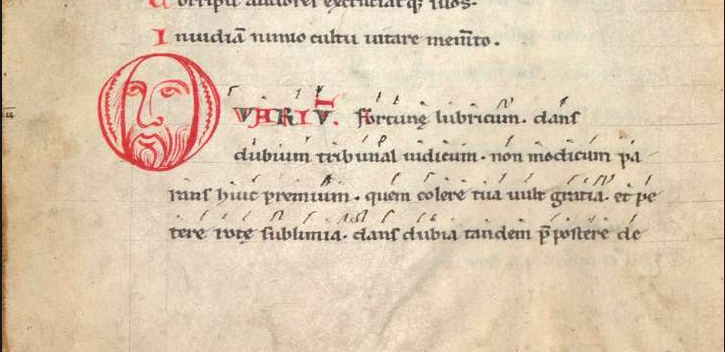 Corripit auctores excruciatq; suos.
Inuidiā nimio cultu uitare mem̄to.
O VARIV̄. fortunę lubricum. danſ
dubium tribunal iudicum. non modicum pa
ranſ huic premium. quem colere tua uult gratia. et pe
tere rotę ſublimia. danſ dubia tandem p̄poſtere de